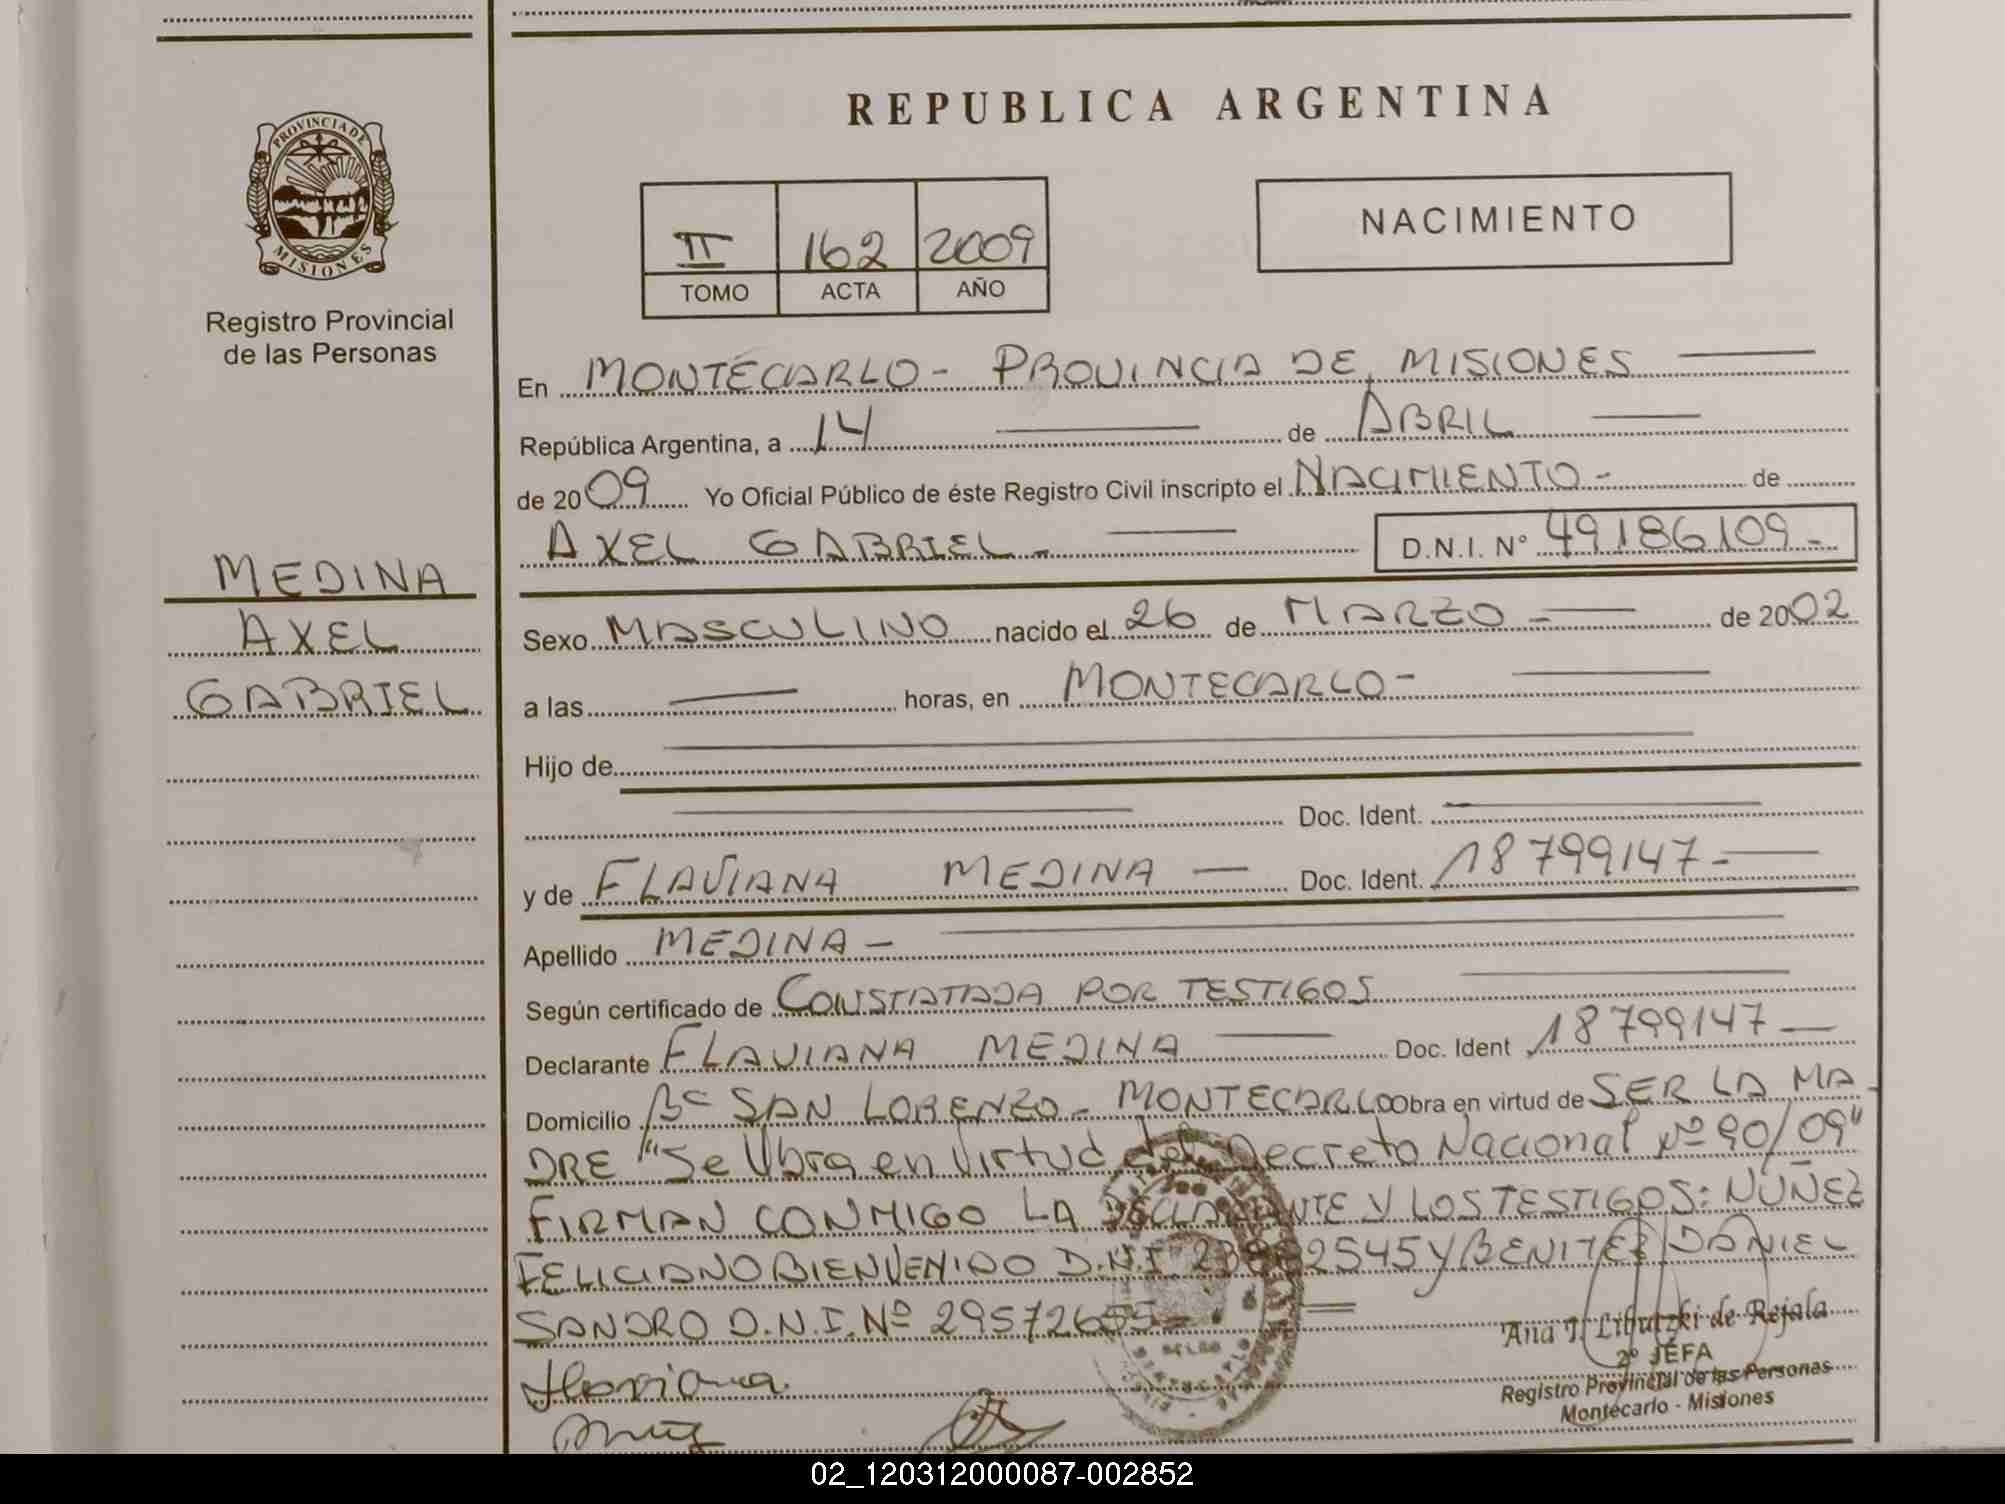 PROVINCIA DE
MISIONES
Registro Provincial
de las Personas
MEDINA
AXEL
GABRIEL
REPUBLICA ARGENTINA
II 162 2009
TOMO ACTA AÑO
NACIMIENTO
En MONTECARLO - PROVINCIA DE MISIONES
República Argentina, a 14 de ABRIL
de 2009 Yo Oficial Público de éste Registro Civil inscripto el NACIMIENTO - de
AXEL GABRIEL - D.N.I. N° 49186109 -
Sexo MASCULINO nacido el 26 de MARZO - de 2002
a las horas, en MONTECARLO -
Hijo de
Doc. Ident.
y de FLAVIANA MEDINA Doc. Ident. 18799147 -
Apellido MEDINA -
Según certificado de CONSTATADA POR TESTIGOS
Declarante FLAVIANA MEDINA Doc. Ident 18799147
Domicilio B° SAN LORENZO - MONTECARLO Obra en virtud de SER LA MA-
DRE "Se Obra en Virtud del Decreto Nacional Nº 90/09"
FIRMAN CONMIGO LA DECLARANTE Y LOS TESTIGOS: NUÑEZ
FELICIANO BIENVENIDO D.N.I. Y BENITEZ DANIEL
SANDRO D.N.I. Nº
Flaviana
Ana I. de Rejala
2º JEFA
Registro Provincial de las Personas
Montecarlo - Misiones
02_120312000087-002852